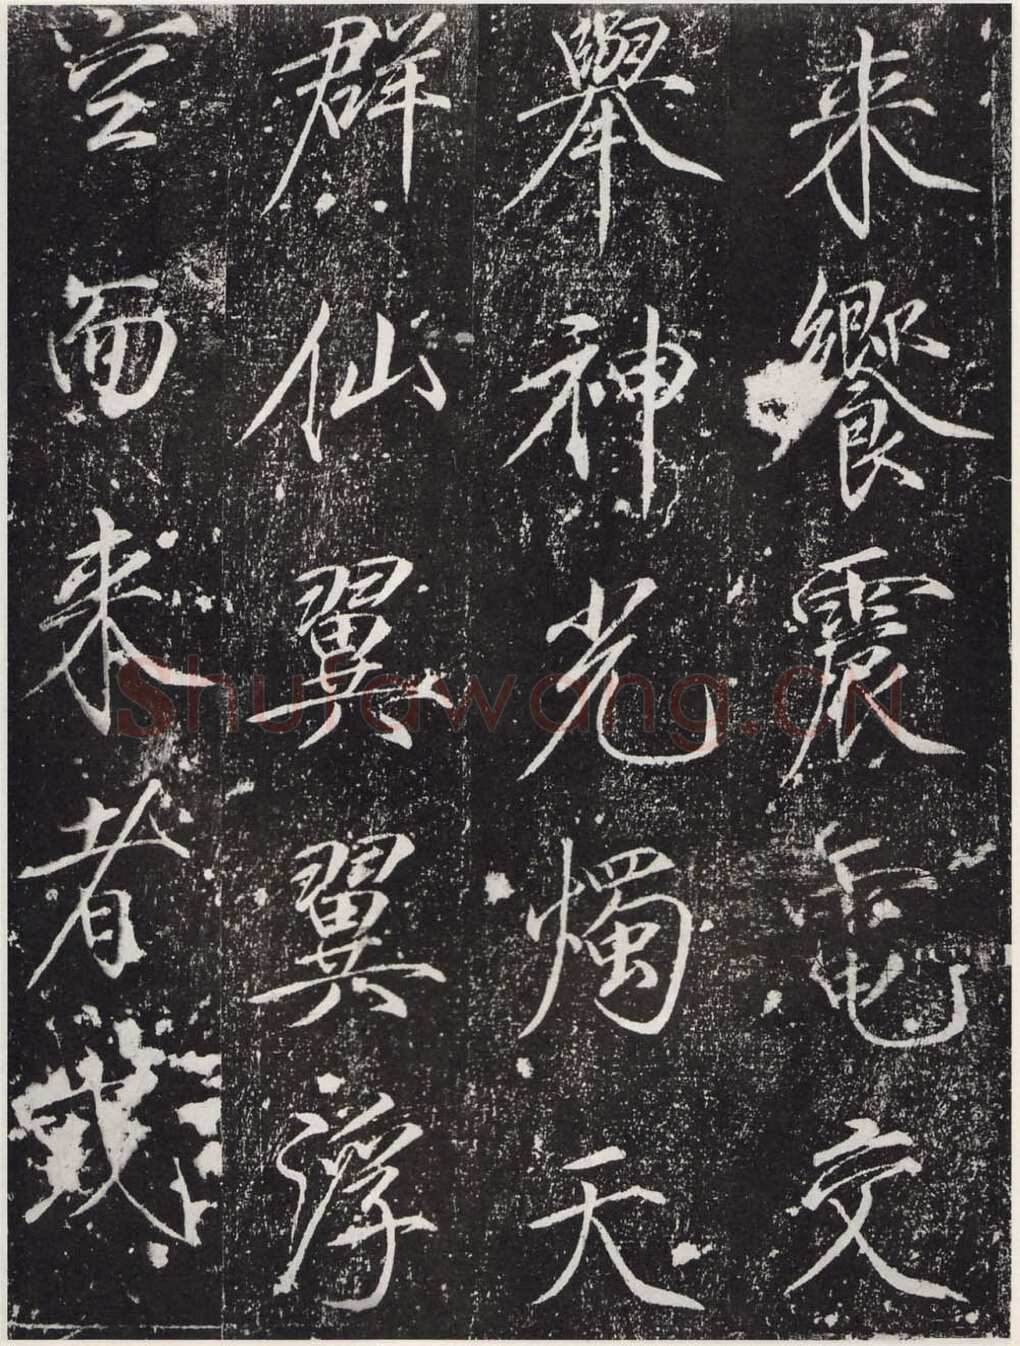 来饗震電交
舉神光燭天
群仙翼翼浮
空而来者或
Shufawang.CN